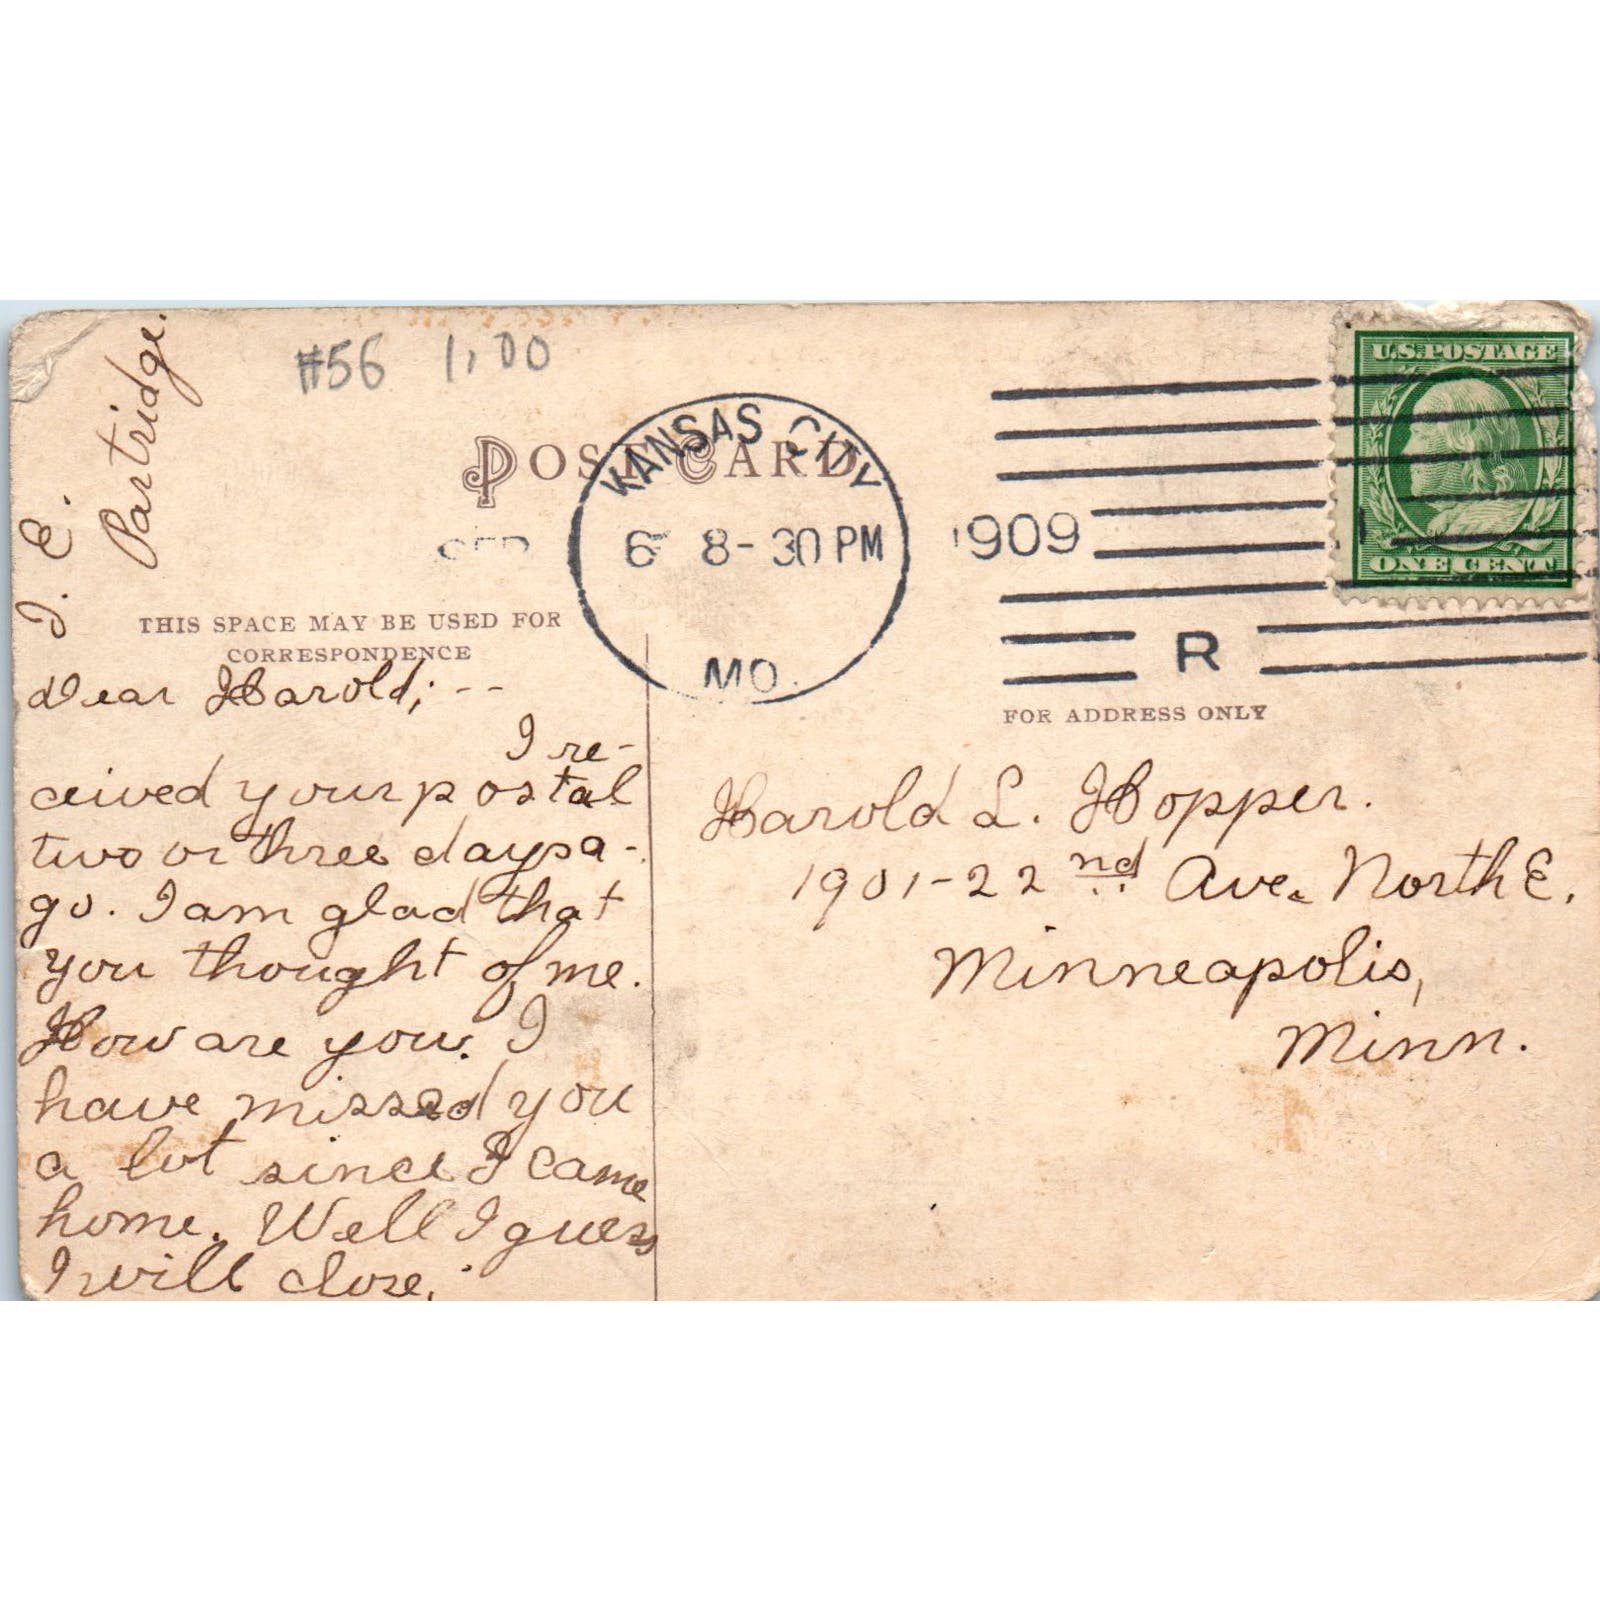 #56 1.00
POST CARD
KANSAS CITY
SEP 6 8-30 PM 1909
MO.
R
U.S. POSTAGE
ONE CENT
THIS SPACE MAY BE USED FOR
CORRESPONDENCE
FOR ADDRESS ONLY
Dear Harold; --
I re-
ceived your postal
two or three days a-
go. I am glad that
you thought of me.
How are you. I
have missed you
a lot since I came
home. Well I guess
I will close.
E.
Partridge.
Harold L. Hopper.
1901-22nd Ave. North E.
Minneapolis,
Minn.